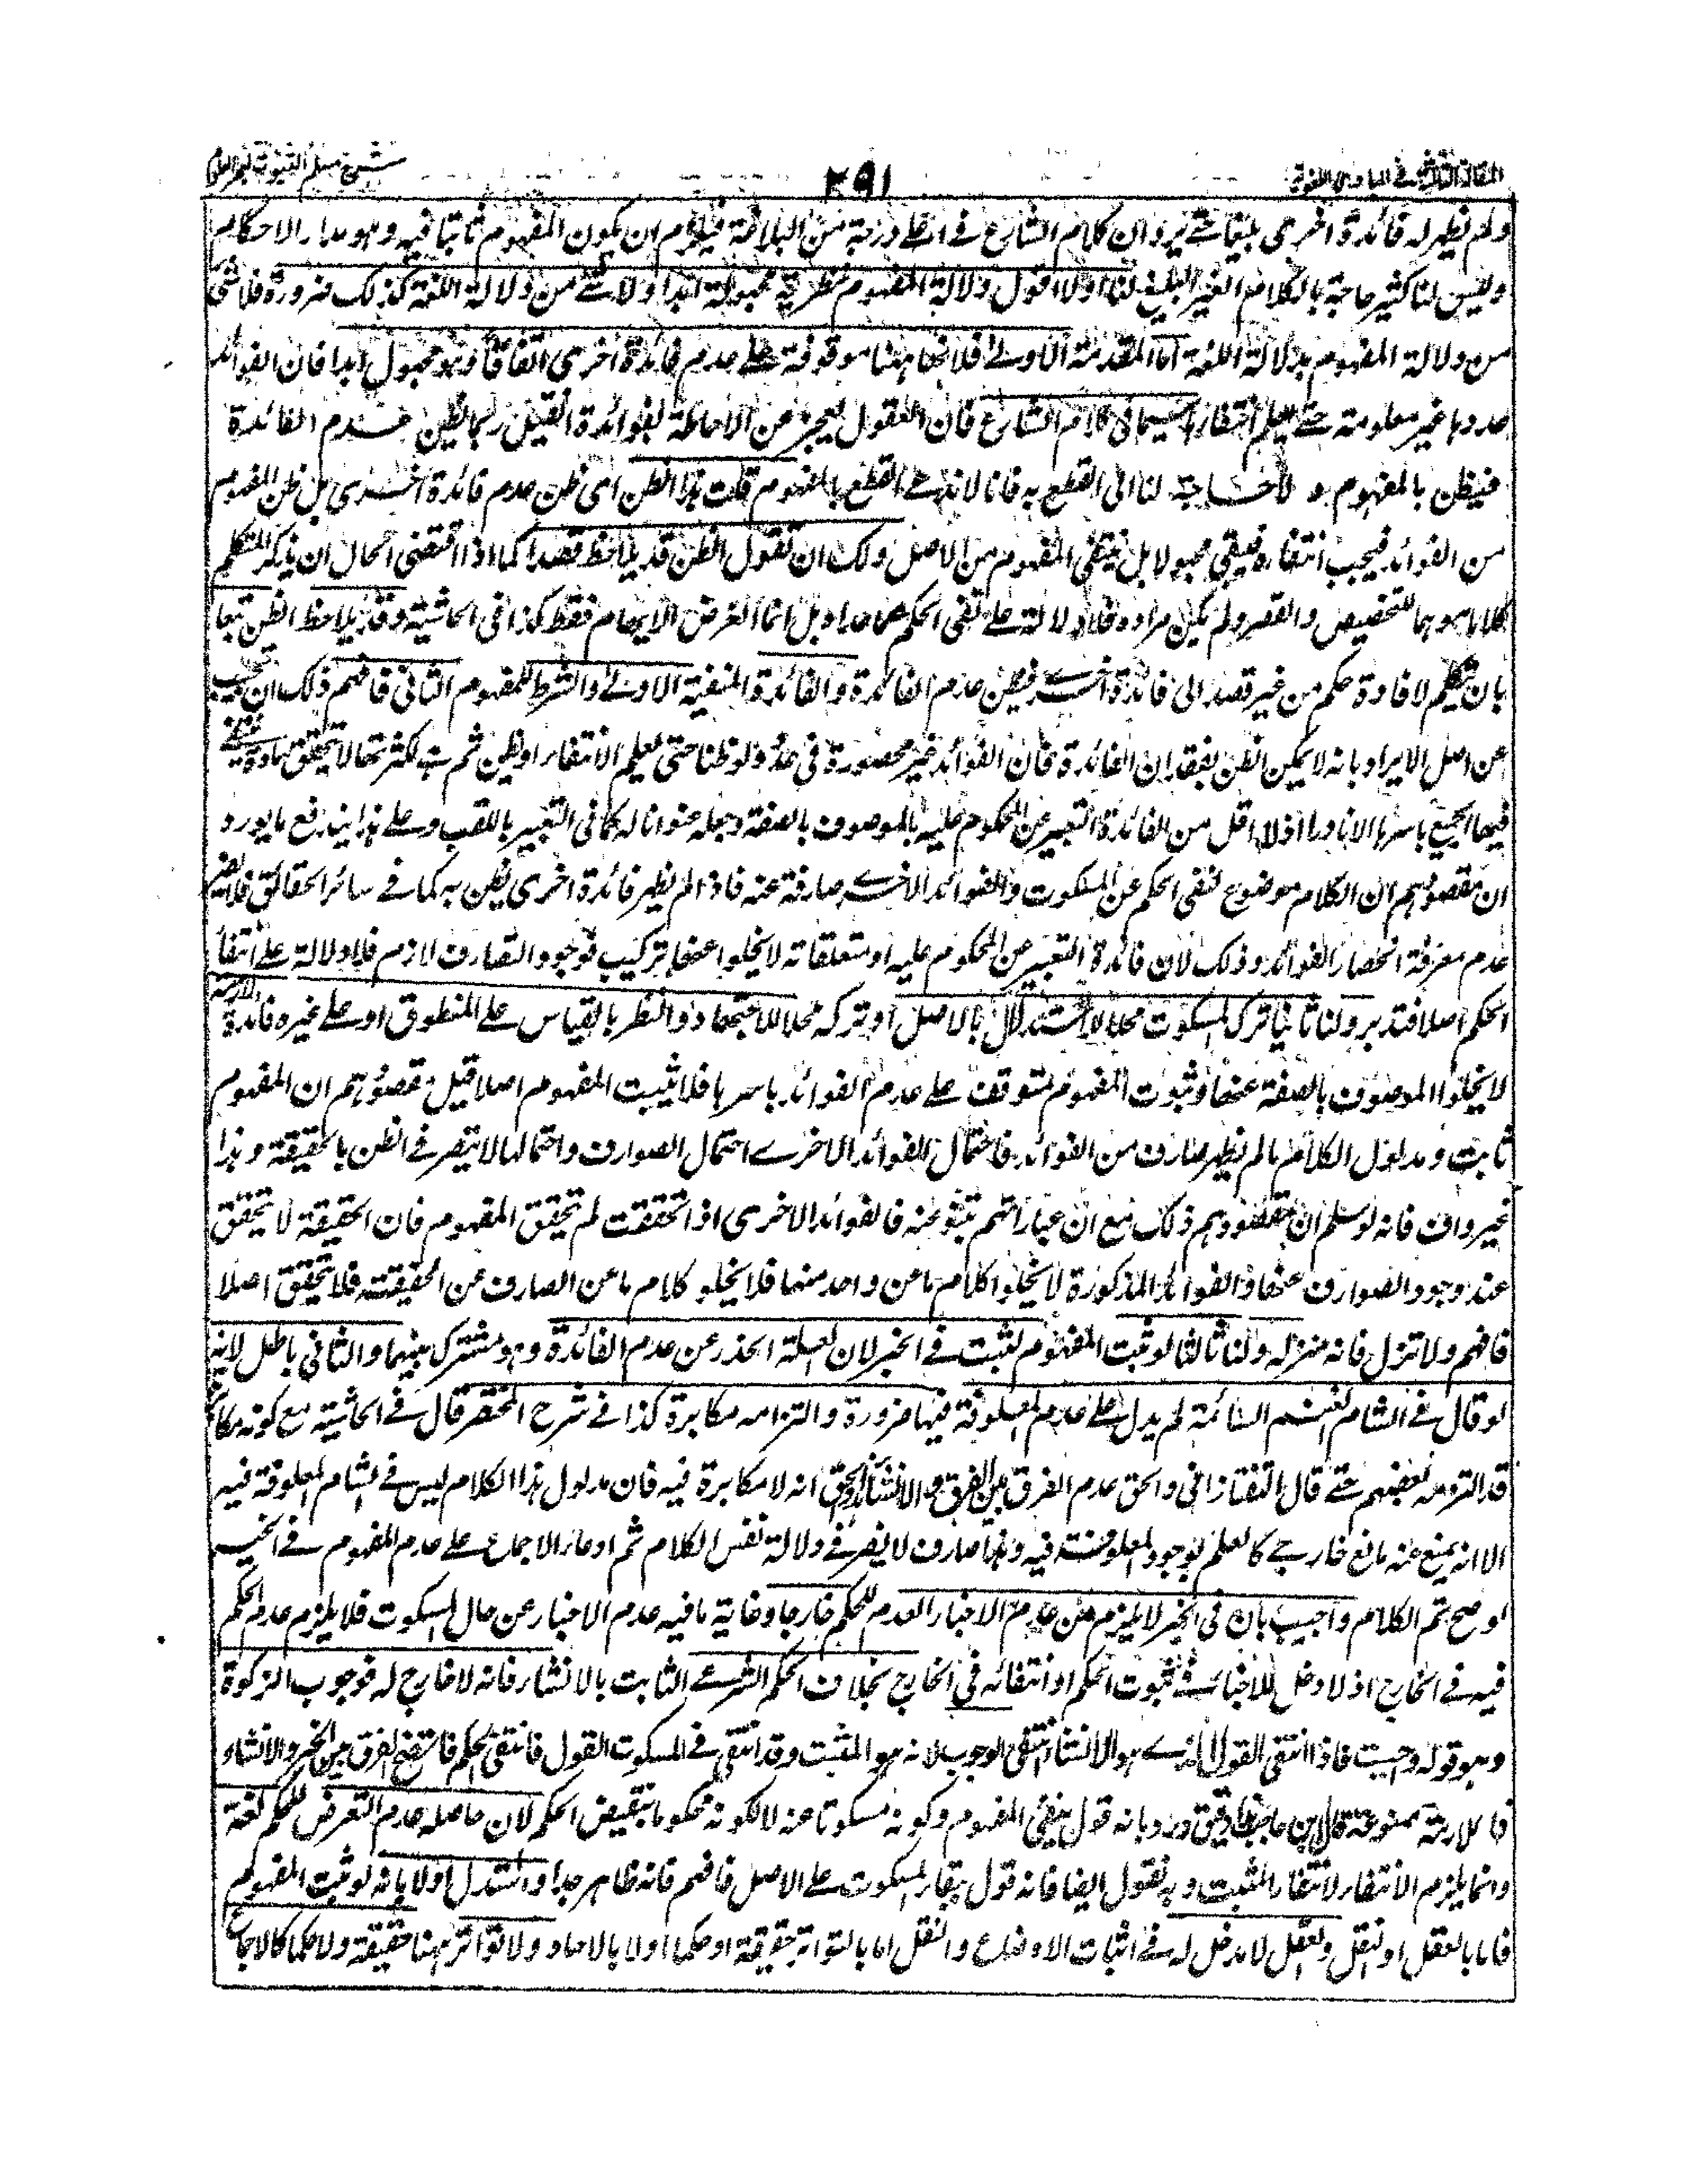 المقالة الثالثة في المبادي اللغوية
٢٩١
شرح مسلم الثبوت لبحر العلوم
ولم يظهر له فائدة اخرى يبقى وان كلام الشارع في اعلى درجة من البلاغة فيلزم ان يكون المفهوم ثابتا فيه وهو مدار الاحكام
وليس لنا كثير حاجة بالكلام الغير البليغ لنا اولا اقول دلالة المفهوم نظرية مجهولة ابدا ولا شئ من دلالة اللغة كذلك ضرورة فلا شئ
من دلالة المفهوم بدلالة اللغة اما المقدمة الاولى فلانها ههنا موقوفة على عدم فائدة اخرى اتفاقا وهو مجهول ابدا فان الفوائد
عددها غير معلومة حتى يعلم انتفاؤها سيما في كلام الشارع فان العقول يعجز عن الاحاطة لفوائده انقيل ربما يظن عدم الفائدة
فيظن بالمفهوم ولا حاجة لنا الى القطع به فانا لا ندعي القطع بالمفهوم قلت هذا الظن اى ظن عدم فائدة اخرى بل ظن المفهوم
من الفوائد فيجب انتفاؤه فيبقى مجهولا بل ينتفى المفهوم من الاصل ولك ان تقول الظن قد يلاحظ قصدا كما اذا اقتضى الحال ان يذكر المتكلم
كلاما موهما للتخصيص والقصر ولم يكن مراده فلا دلالة على نفى الحكم عما عداه بل انما الغرض الايهام فقط كذا في الحاشية وقد يلاحظ الظن تبعا
بان يتكلم لافادة حكم من غير قصد الى فائدة اخرى فيظن عدم الفائدة والفائدة المنفية الاولى والشرط للمفهوم الثانى فافهم ذلك ان تجيب
عن اصل الايراد بانه لا يمكن الظن بفقدان الفائدة فان الفوائد غير محصورة في عد ولو ظنا حتى يعلم الانتفاء او يظن ثم هى لكثرتها لا يتحقق مادة ينتفى
فيها الجميع باسرها الا نادرا اذ لا اقل من الفائدة التعبير عن المحكوم عليه بالموصوف بالصفة وجعله عنوانا له كما في التعبير باللقب وعلى هذا يندفع ما يورد
ان مقصودهم ان الكلام موضوع لنفى الحكم عن المسكوت والفوائد الاخرى صارفة عنه فاذا لم يظهر فائدة اخرى يظن به كما في سائر الحقائق فلا يضر
عدم معرفة انحصار الفوائد وذلك لان فائدة التعبير عن المحكوم عليه او متعلقاته لا يخلوا عنها تركيب فوجود الصارف لازم فلا دلالة على انتفاء
الحكم اصلا فتدبر ولنا ثانيا ترك المسكوت محلا للاستدلال بالاصل او تركه محلا لاجتهاد ذو النظر بالقياس على المنطوق او على غيره فائدة لازمة
لا يخلوا الموصوف بالصفة عنها وثبوت المفهوم متوقف على عدم الفوائد باسرها فلا يثبت المفهوم اصلا قيل مقصودهم ان المفهوم
ثابت ومدلول الكلام ما لم يظهر صارف من الفوائد فاحتمال الفوائد الاخرى احتمال الصوارف واحتمالها لا يضر في الظن بالحقيقة وهذا
غير واف فانه لو سلم ان مقصودهم ذلك مع ان عباراتهم تنبؤ عنه فالفوائد الاخرى اذا تحققت لم تحقق المفهوم فان الحقيقة لا يتحقق
عند وجود الصوارف عنها والفوائد المذكورة لا يخلوا كلام ما عن واحد منها فلا يخلو كلام ما عن الصارف عن الحقيقة فلا يتحقق اصلا
فافهم ولا تزل فانه مزلة ولنا ثالثا لو ثبت المفهوم لثبت في الخبر لان العلة الحذر عن عدم الفائدة وهو مشترك بينهما والثانى باطل لانه
لو قال في الشام الغنم السائمة لم يدل على عدم المعلوفة فيها ضرورة والتزامه مكابرة كذا في شرح المختصر قال في الحاشية مع كونه مكابرة
قد التزمه بعضهم حتى قال التفتازانى والحق عدم الفرق بين الخبر والانشاء والحق انه لا مكابرة فيه فان مدلول هذا الكلام ليس في الشام المعلوفة فيه
الا انه يمنع عنه مانع خارجى كالعلم بوجود المعلوفة فيه وهذا صارف لا يضر في دلالة نفس الكلام ثم ادعاء الاجماع على عدم المفهوم في الخبر
لو صح تم الكلام واجيب بان في الخبر لا يلزم من عدم الاخبار العدم للحكم خارجا وغاية ما فيه عدم الاخبار عن حال المسكوت فلا يلزم عدم الحكم
فيه في الخارج اذ لا دخل للاخبار في ثبوت الحكم او انتفائه في الخارج بخلاف الحكم الشرعى الثابت بالانشاء فانه لا خارج له فوجوب الزكوة
وهو قوله وجبت فاذا انتفى القول الذى هو الانشاء انتفى الوجوب لانه هو المثبت وقد انتفى في المسكوت القول فانتفى الحكم فاتضح الفرق بين الخبر والانشاء
فالملازمة ممنوعة قال ابن حاجب هذا دقيق ورد بانه قول بنفى المفهوم وكونه مسكوتا عنه لا لكونه محكوما بنقيض الحكم لان حاصله عدم التعرض للحكم لغة
وانما يلزم الانتفاء لانتفاء المثبت وبه نقول ايضا فانه قول ببقاء المسكوت على الاصل فافهم فانه ظاهر جدا واستدل اولا بانه لو ثبت المفهوم
فاما بالعقل او النقل والعقل لا مدخل له في اثبات الاوضاع والنقل اما بالتواتر حقيقة او حكما اولا بالاحاد ولا تواتر ههنا حقيقة ولا حكما كالاجماع